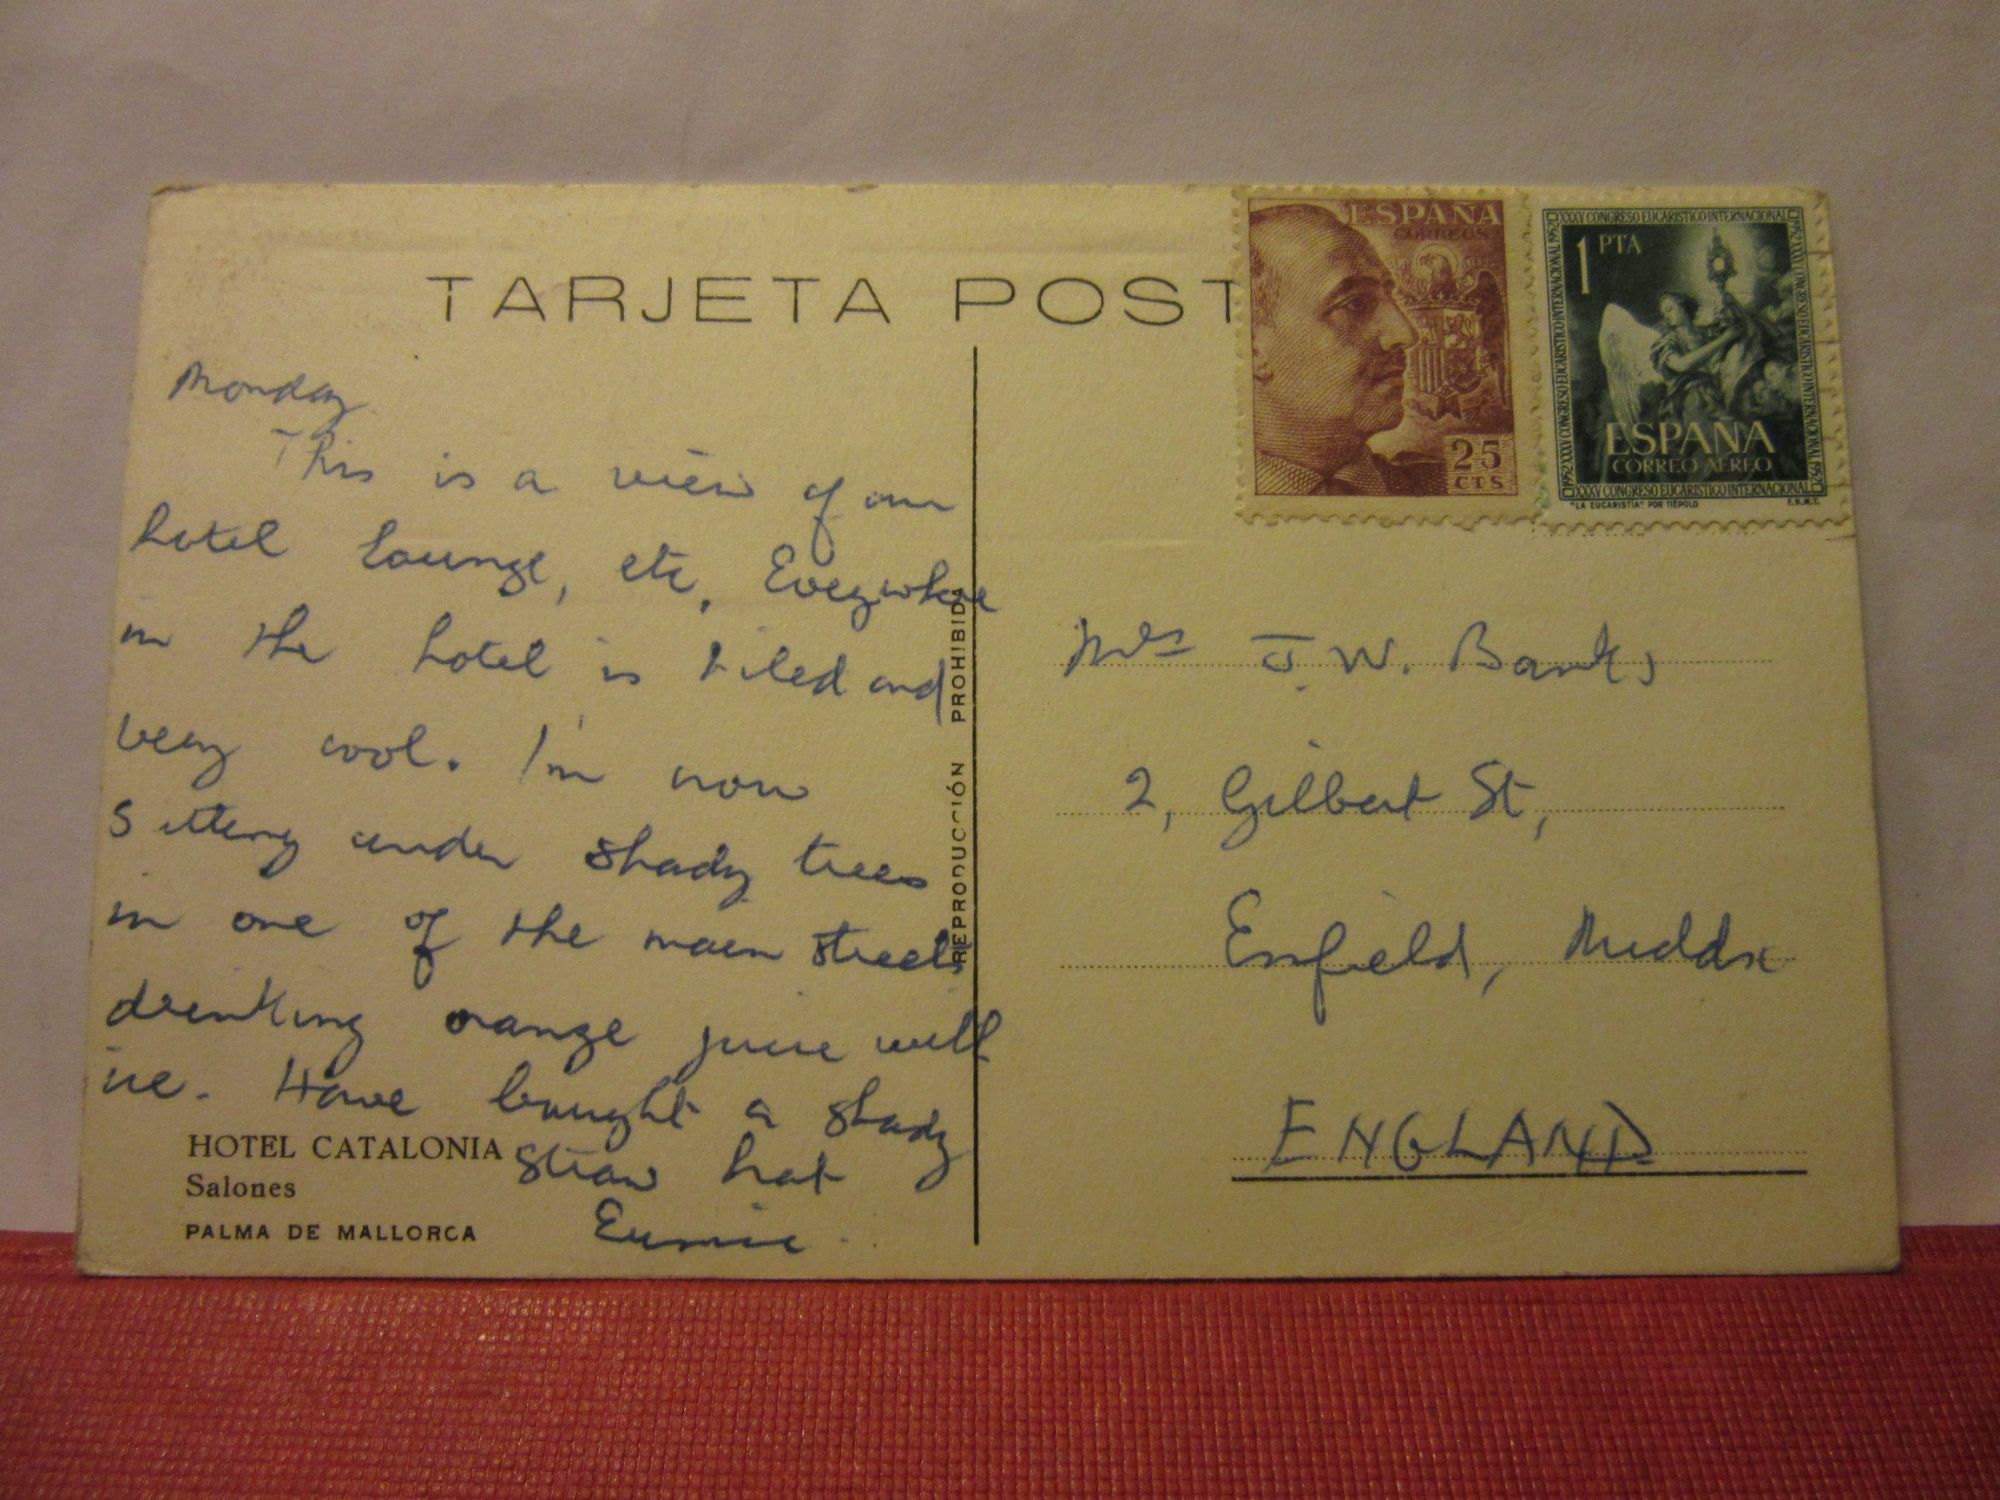 TARJETA POST
Monday
This is a view of our
hotel lounge, etc. Everywhere
in the hotel is tiled and
very cool. I'm now
sitting under shady trees
in one of the main streets
drinking orange juice with
ice. Have bought a shady
straw hat
Eunice.
HOTEL CATALONIA
Salones
PALMA DE MALLORCA
REPRODUCCIÓN PROHIBIDA
ESPAÑA
CORREOS
25
CTS
XXXV CONGRESO EUCARISTICO INTERNACIONAL
1952 XXXV CONGRESO EUCARISTICO INTERNACIONAL 1952
XXXV CONGRESO EUCARISTICO INTERNACIONAL 1952
1 PTA
ESPAÑA
CORREO AEREO
XXXV CONGRESO EUCARISTICO INTERNACIONAL
"LA EUCARISTIA" POR TIÉPOLO F.N.M.T.
Mrs J. W. Banks
2, Gilbert St,
Enfield, Middx
ENGLAND